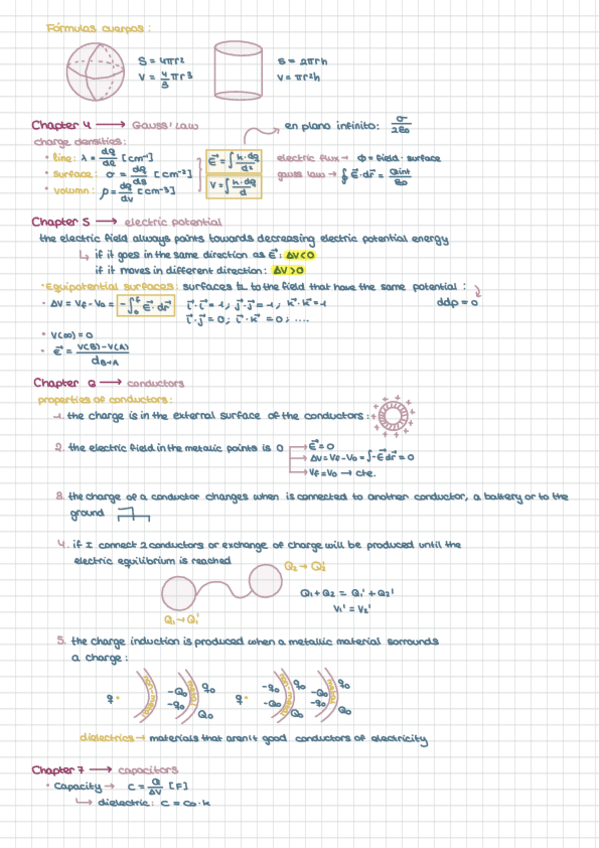 Fórmulas cuerpos:
S = 4πr²
V = 4/3 πr³
S = 2πrh
V = πr²h
Chapter 4 → Gauss' Law
en plano infinito: σ/2ε₀
charge densities:
• line: λ = dq/dl [cm⁻¹]
• surface: σ = dq/ds [cm⁻²]
• volumn: ρ = dq/dv [cm⁻³]
E⃗ = ∫ k·dq/d²
V = ∫ k·dq/d
electric flux → Φ = field · surface
gauss law → ∮ E⃗·dr⃗ = Qint/ε₀
Chapter 5 → electric potential
the electric field always points towards decreasing electric potential energy
↳ if it goes in the same direction as E⃗: ΔV<0
if it moves in different direction: ΔV>0
• Equipotential surfaces: surfaces ⊥ to the field that have the same potential :
ddp = 0
• ΔV = Vf - V₀ = -∫₀ᶠ E⃗·dr⃗
i⃗·i⃗ = 1; j⃗·j⃗ = 1; k⃗·k⃗ = 1
i⃗·j⃗ = 0; i⃗·k⃗ = 0; ....
• V(∞) = 0
• E⃗ = V(B) - V(A) / d B→A
Chapter 6 → conductors
properties of conductors:
1. the charge is in the external surface of the conductors:
2. the electric field in the metallic points is 0
→ E⃗ = 0
→ ΔV = Vf - V₀ = ∫-E⃗dr⃗ = 0
→ Vf = V₀ → cte.
3. the charge of a conductor changes when is connected to another conductor, a battery or to the
ground
4. if I connect 2 conductors or exchange of charge will be produced until the
electric equilibrium is reached
Q₂ → Q₂'
Q₁ → Q₁'
Q₁ + Q₂ = Q₁' + Q₂'
V₁' = V₂'
5. the charge induction is produced when a metallic material sorrounds
a charge:
q •
-Q₀
-q₀
q₀
Q₀
q •
-q₀
-Q₀
q₀
Q₀
-Q₀
-q₀
q₀
Q₀
dielectrics → materials that aren't good conductors of electricity
Chapter 7 → capacitors
• Capacity → C = Q/ΔV [F]
↳ dielectric: C = C₀·k